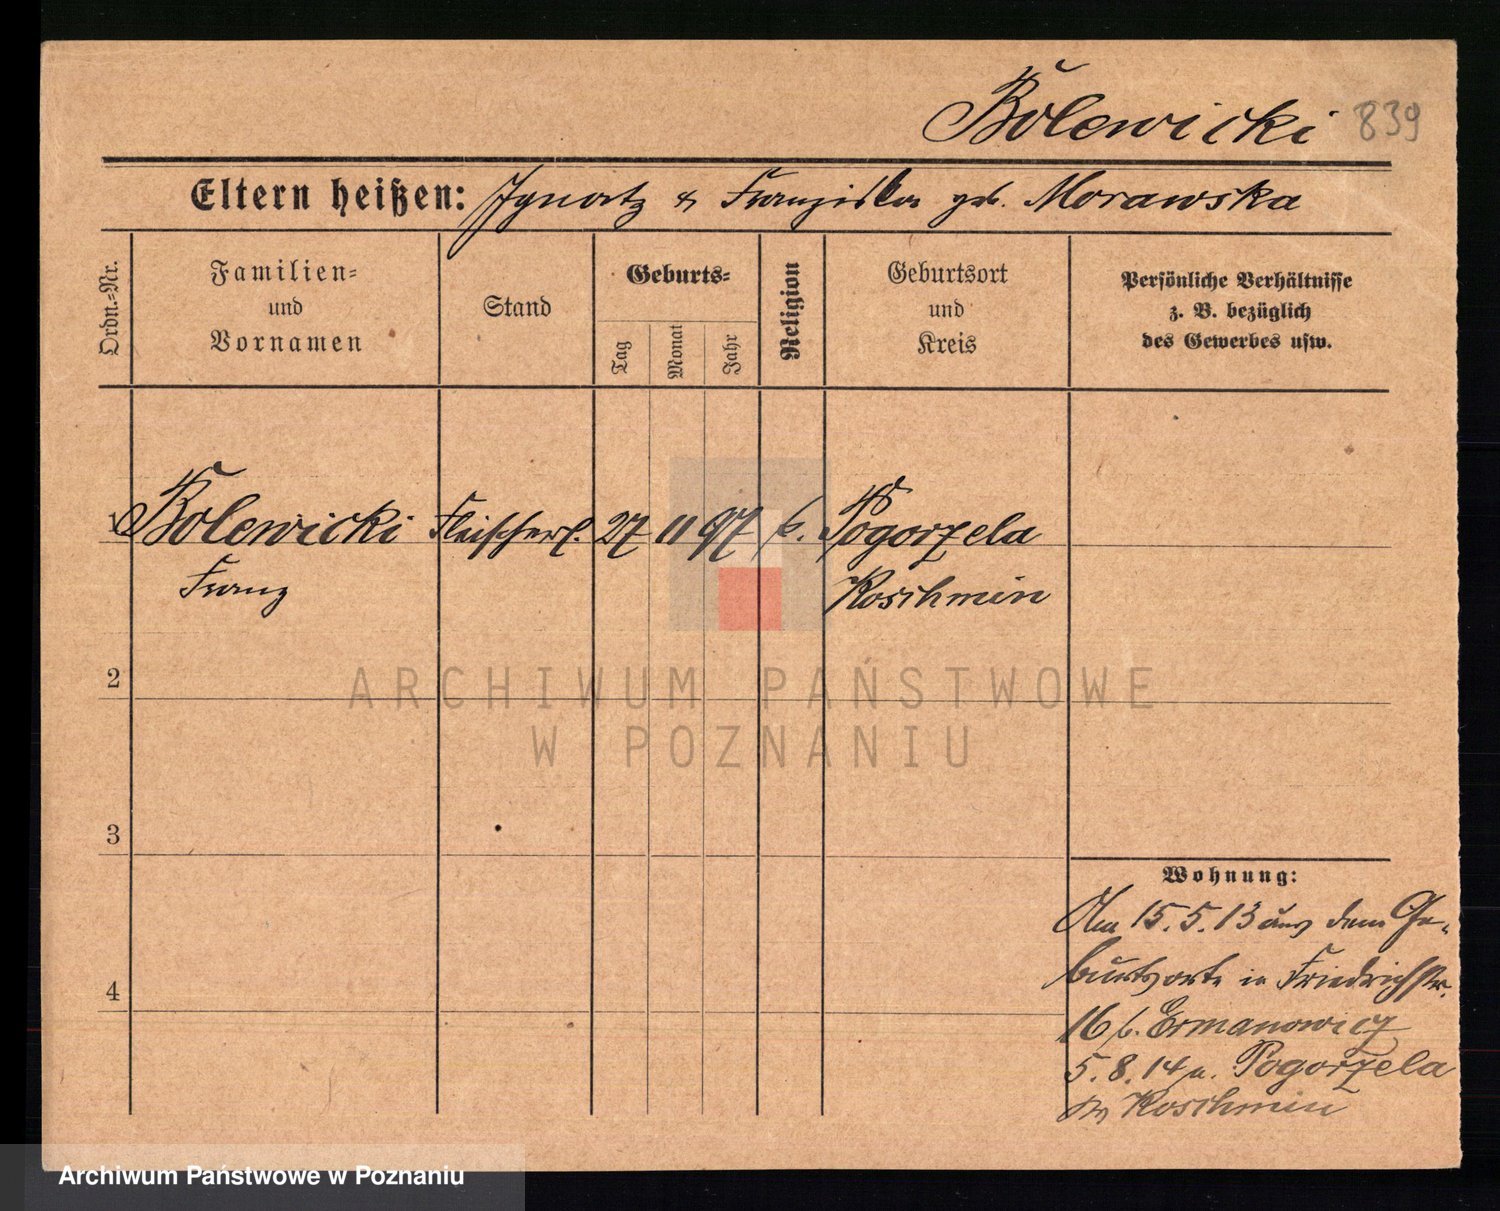 Bolewicki 839
Eltern heißen: Ignatz & Franziska geb. Morawska
Ordn.-Nr.
Familien-
und
Vornamen
Stand
Geburts-
Tag
Monat
Jahr
Religion
Geburtsort
und
Kreis
Persönliche Verhältnisse
z. B. bezüglich
des Gewerbes usw.
1 Bolewicki Fleischerl. 27 11 97 k. Pogorzela
Franz Koschmin
2
ARCHIWUM PAŃSTWOWE
W POZNANIU
3
Wohnung:
Am 15.5.13 aus dem Ge-
burtsorte in Friedrichstr.
4
16 b. Ermanowicz
5.8.14 n. Pogorzela
Koschmin
Archiwum Państwowe w Poznaniu